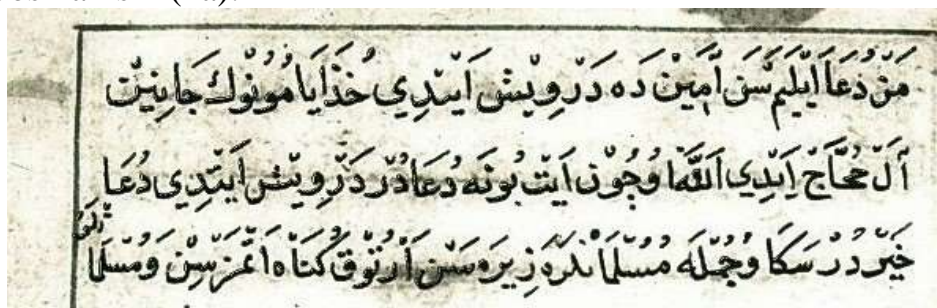 مَنْ دُعَا اَيْلَيَمْ سَنْ اٰمِينْ دَه دَرْوِيشْ اَيْتدِي خُذَايَا مُونُوكْ جَانِينْ
اَلْ حُجَّاجْ اَيْدِي اَللّٰه اُوچُونْ اَيْتْ بُونَه دُعَادُرْ دَرْوِيشْ اَيْتدِي دُعَا
خَيْردُرْ سَكَا وَجُمْلَه مُسُلْمَانْلَرَه زِيرَه سَنْ اَرْتُوقْ كُنَاه اَتْمَزْسِنْ وَمُسُلْمَا